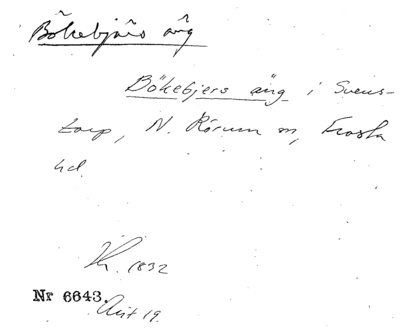 Bökebjärs äng
Bökebjers äng i Svens-
torp, N. Rörum sn, Frosta
hd
1832
Nr 6643.
Avt 19